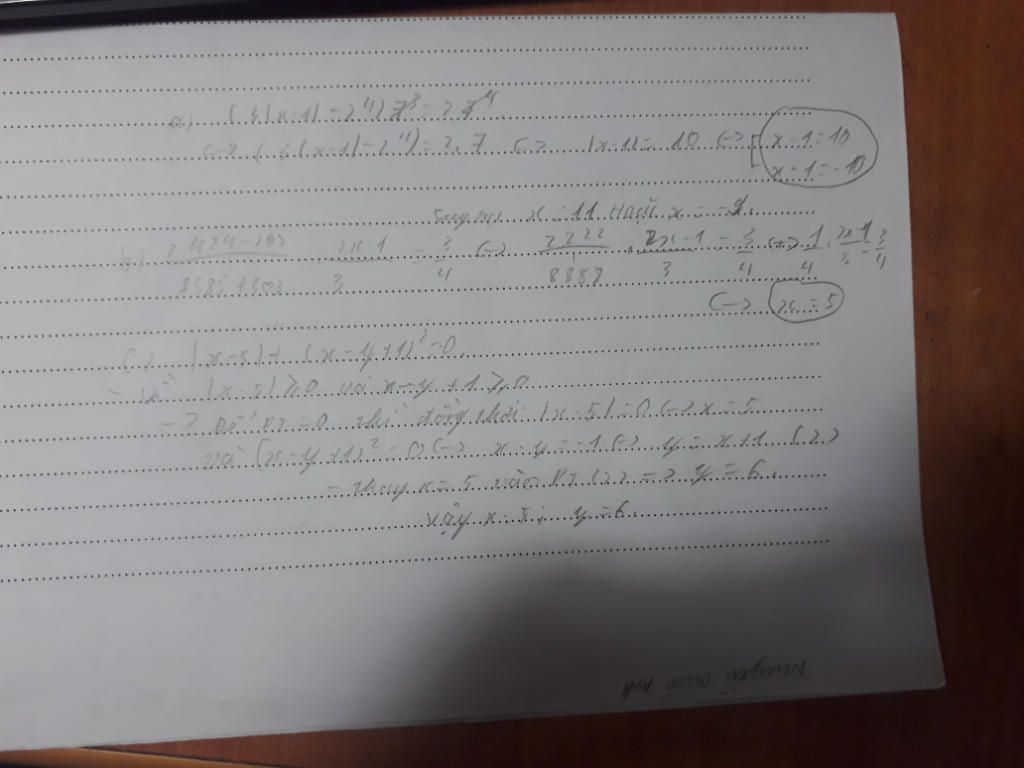 a) (3|x-1| - 2⁴) 7³ = 2.7⁴
<-> (3|x-1| - 2⁴) = 2.7 <-> |x-1| = 10 <-> [ x-1 = 10
x-1 = -10
x = 11 Hoặc x = -9.
b) 2424-202 / 8585+303 . 2x-1 / 3 = 3/4 <-> 2222 / 8888 . 2x-1 / 3 = 3/4 <-> 1/4 . 2x-1 / 3 = 3/4
<-> x = 5
c) |x-5| + (x-y+1)² = 0
- Vì |x-5| ≥ 0 và x-y+1 ≥ 0
-> Để PT = 0 thì đồng thời |x-5| = 0 <-> x = 5
và (x-y+1)² = 0 <-> x-y = -1 <-> y = x+1 (2)
- thay x = 5 vào PT (2) => y = 6.
vậy x = 5; y = 6.
Nguyễn Anh